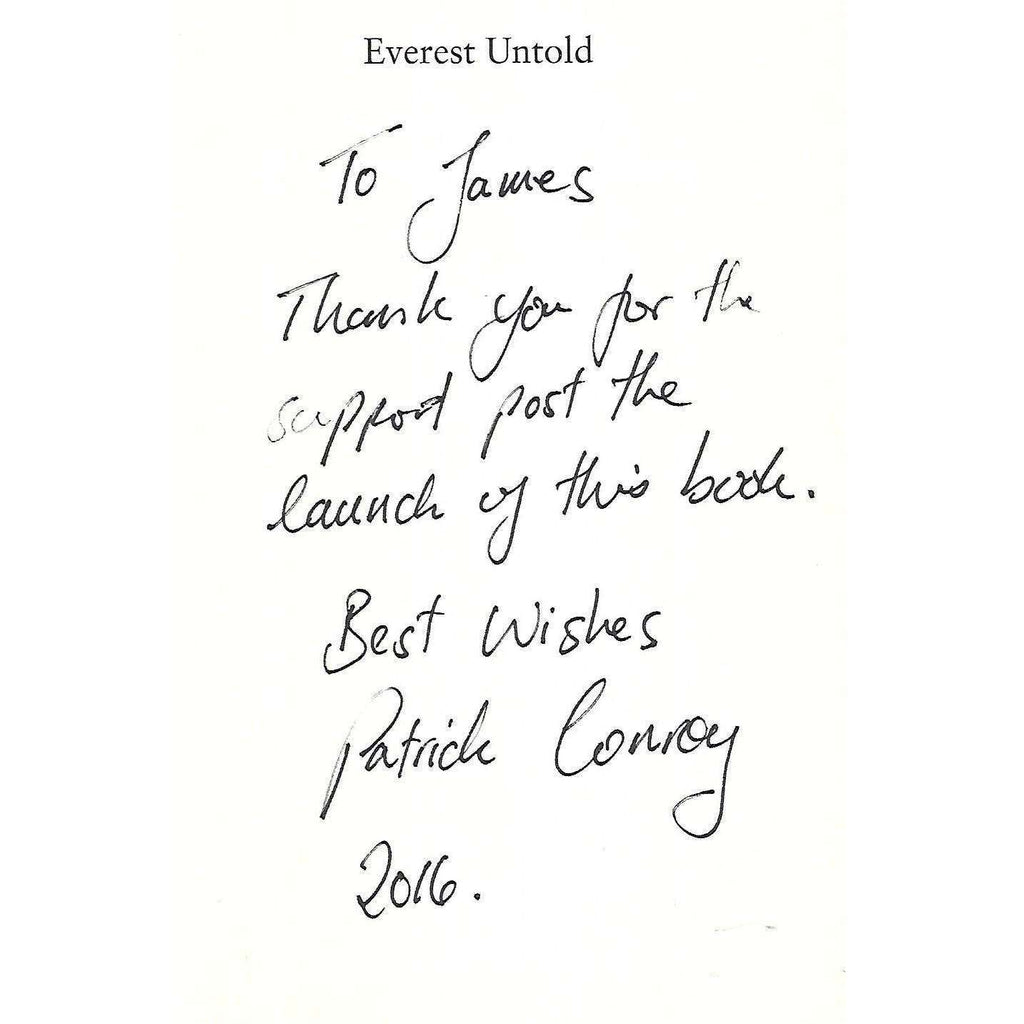 Everest Untold
To James
Thank you for the
support post the
launch of this book.
Best Wishes
Patrick Conroy
2016.